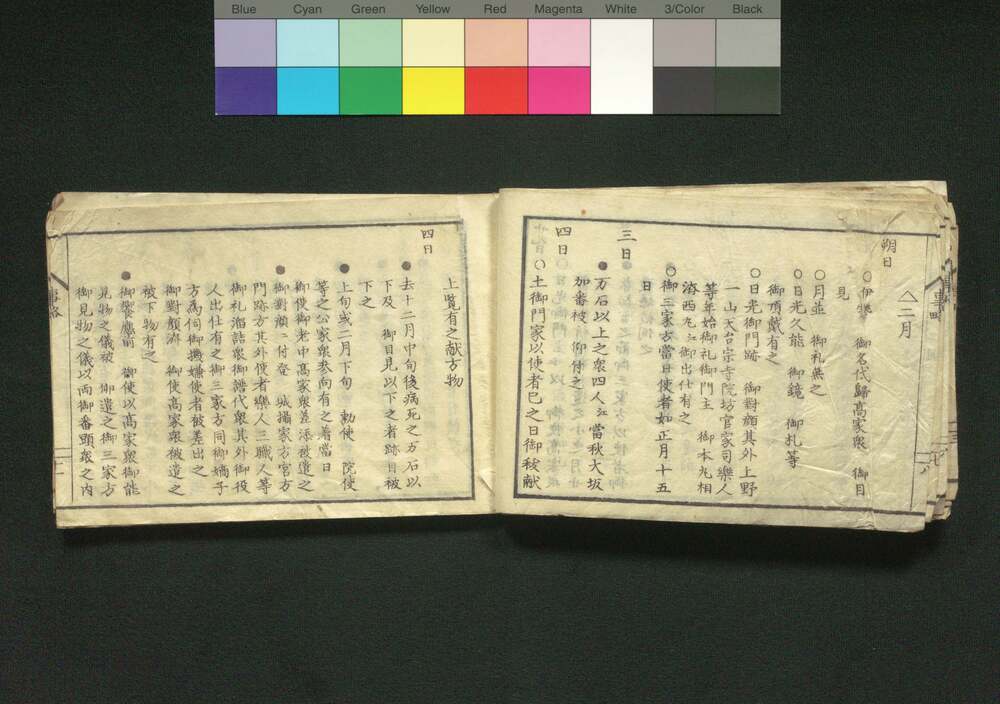 Blue Cyan Green Yellow Red Magenta White 3/Color Black
二月
朔日
○伊勢 御名代歸高家衆 御目
見
○月並 御礼無之
○日光久能 御鏡 御札等
御頂戴有之
○日光御門跡 御對顔其外上野
一山天台宗寺院坊官家司樂人
等年始御礼御門主 御本丸相
済西丸江御出仕有之
○御三家方當日使者如正月十五
日
三日
●万石以上之衆四人江當秋大坂
加番被 仰付之
四日
○土御門家以使者巳之日御秡献
上覧有之献方物
四日
●去十二月中旬後病死之万石以
下及 御目見以下之者跡目被
下之
●上旬或二月下旬 勅使 院使
等之公家衆参向有之着當日
御使御老中高家衆差添被遣之
●御對顔ニ付登 城攝家方宮方
門跡方其外使者樂人三職人等
御礼溜詰衆御譜代衆其外御役
人出仕有之御三家方同御嫡子
方為伺御機嫌使者被差出之
御對顔済 御使高家衆被遣之
被下物有之
●御饗應前 御使以高家衆御能
見物之儀被 仰遣之御三家方
御見物之儀以両御番頭衆之内